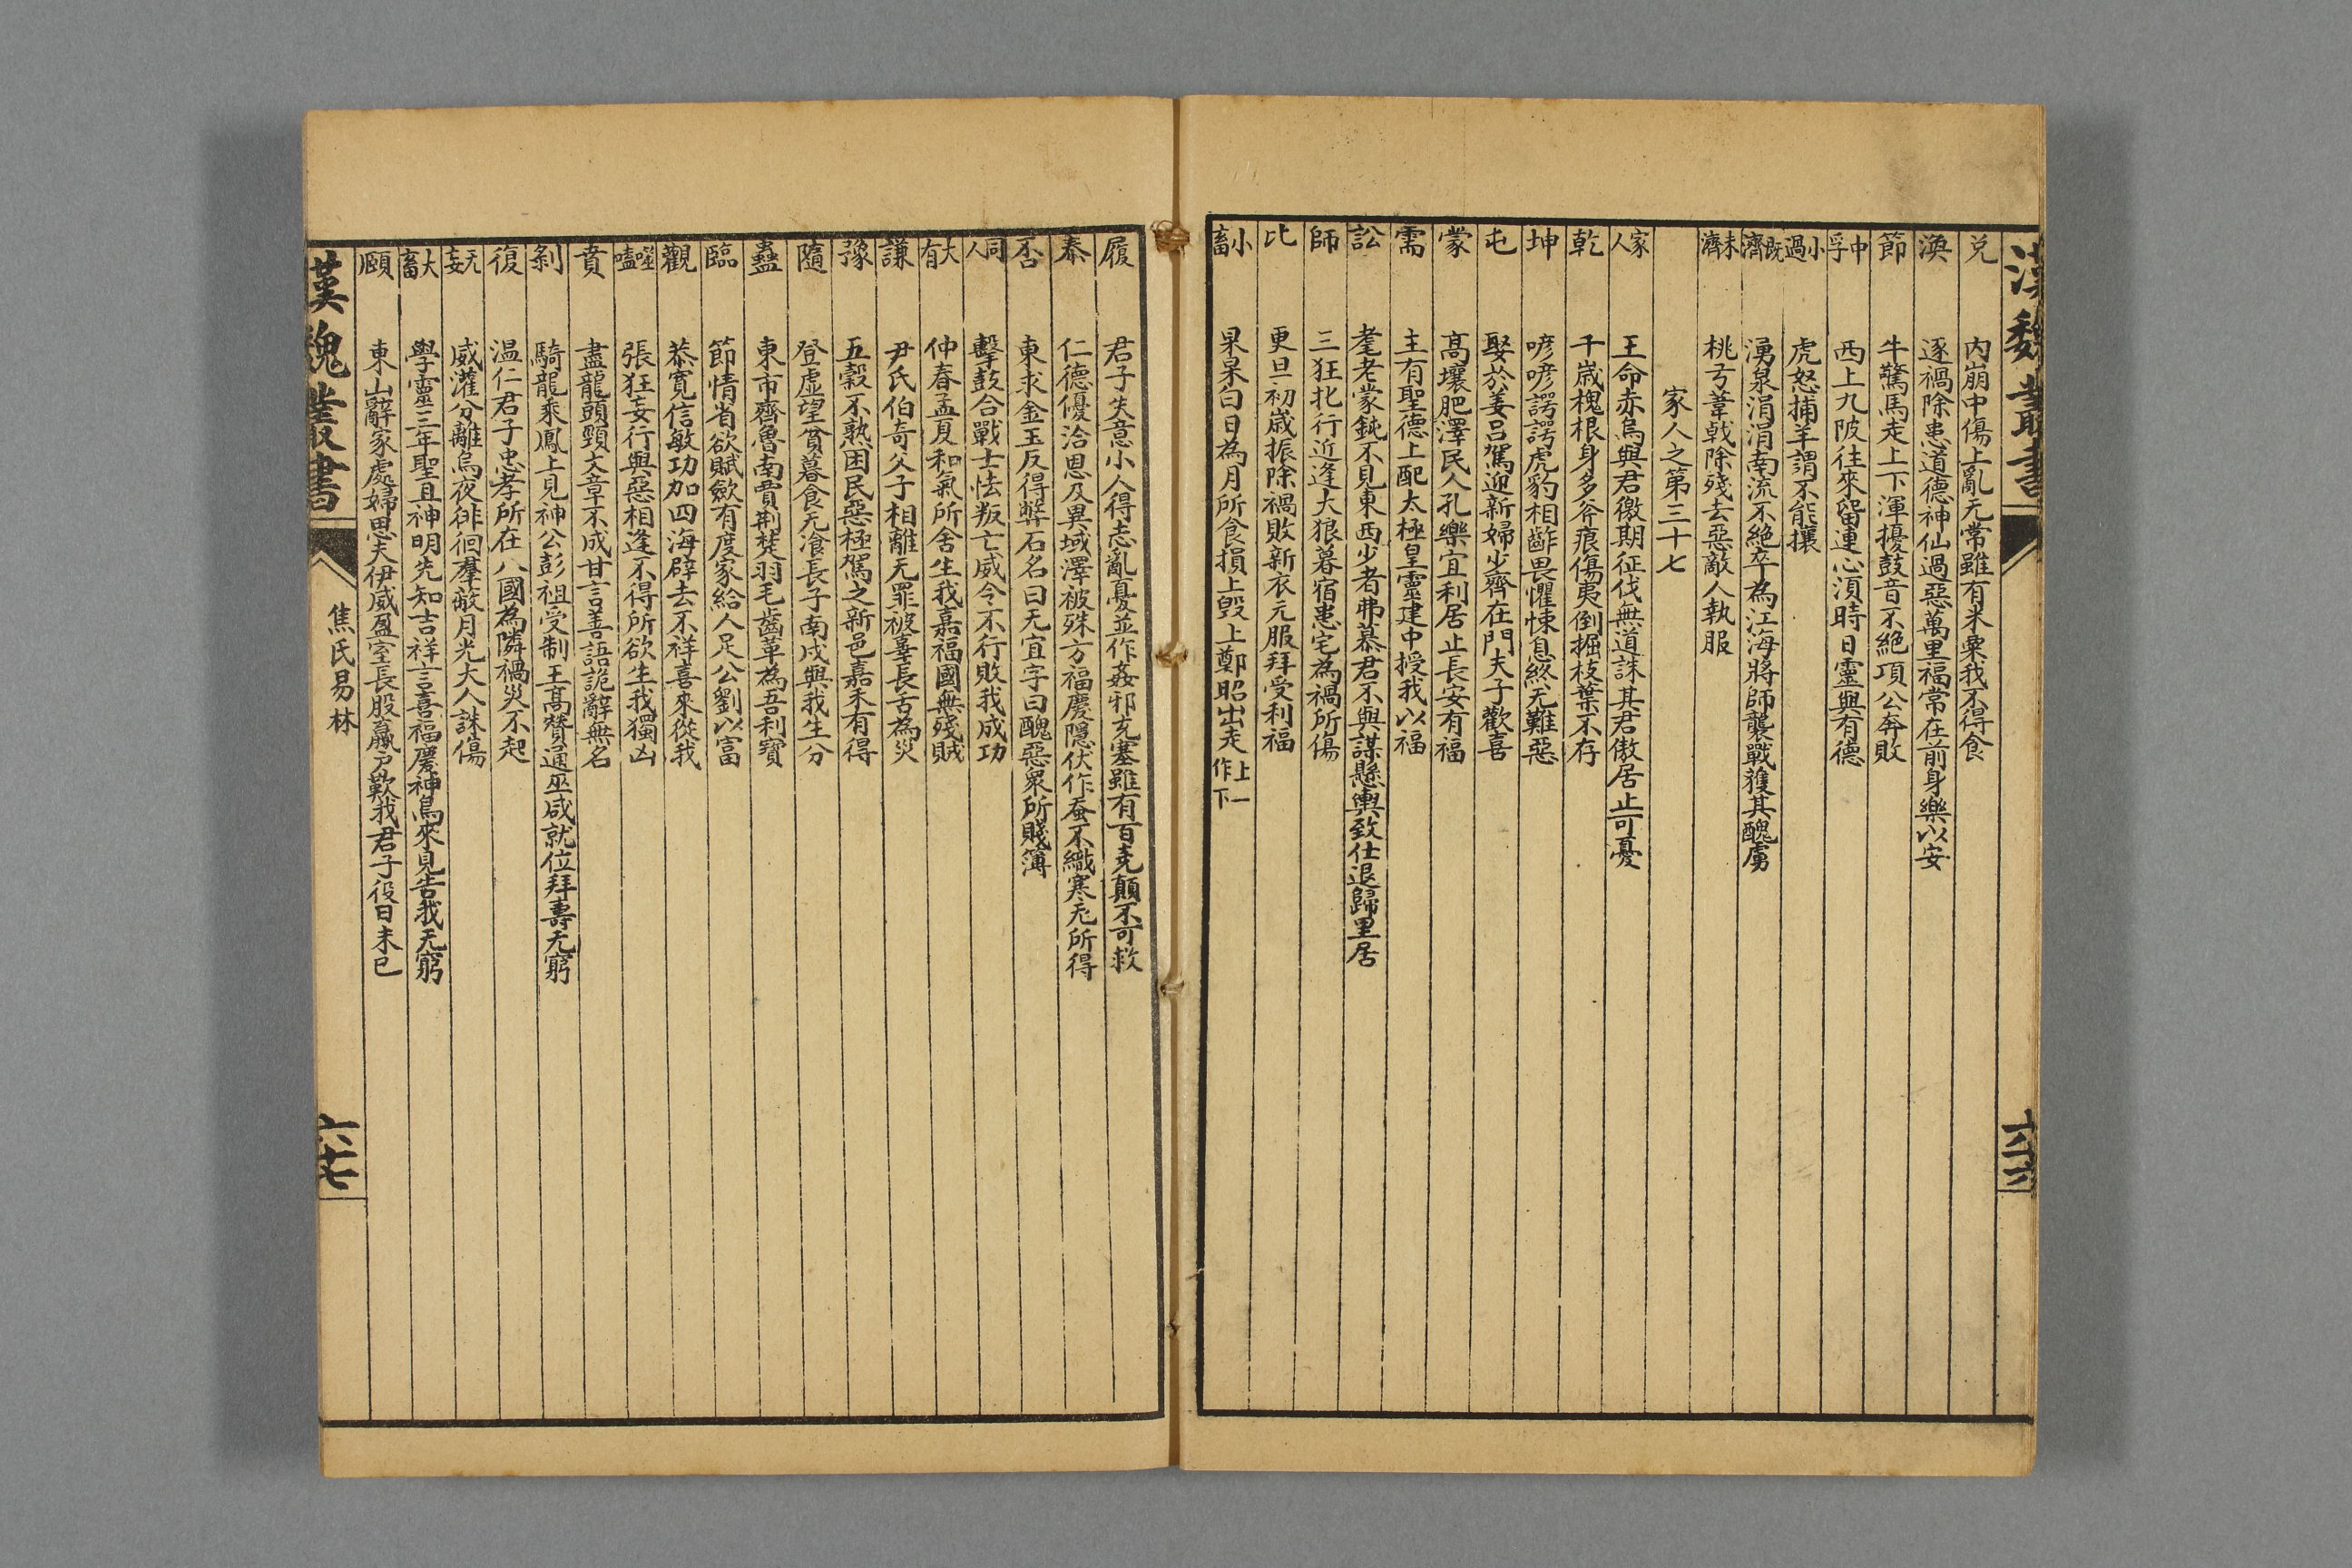 漢魏叢書
兌 內崩中傷上亂无常雖有米粟我不得食
渙 逐禍除患道德神仙過惡萬里福常在前身樂以安
節 牛驚馬走上下渾擾鼓音不絕項公奔敗
中孚 西上九陂往來留連心須時日靈與有德
小過 虎怒捕羊謂不能攘
既濟 湧泉涓涓南流不絕卒為江海將師襲戰獲其醜虜
未濟 桃弓葦戟除殘去惡敵人執服
家人之第三十七
家人 王命赤烏與君徼期征伐無道誅其君傲居止可憂
乾 千歲槐根身多斧痕傷夷倒掘枝葉不存
坤 喭喭諤諤虎豹相齰畏懼悚息終无難惡
屯 娶於姜呂駕迎新婦少齊在門夫子歡喜
蒙 高壤肥澤民人孔樂宜利居止長安有福
需 主有聖德上配太極皇靈建中授我以福
訟 耄老蒙鈍不見東西少者弗慕君不與謀懸輿致仕退歸里居
師 三狂北行近逢大狼暮宿患宅為禍所傷
比 更旦初歲振除禍敗新衣元服拜受利福
小畜 杲杲白日為月所食損上毀上鄭昭出走 上一作下
履 君子失意小人得志亂憂並作姦邪充塞雖有百堯顛不可救
泰 仁德優洽恩及異域澤被殊方福慶隱伏作蠶不織寒无所得
否 東求金玉反得弊石名曰无宜字曰醜惡眾所賤薄
同人 擊鼓合戰士怯叛亡威令不行敗我成功
大有 仲春孟夏和氣所舍生我嘉福國無殘賊
謙 尹氏伯奇父子相離无罪被辜長舌為災
豫 五穀不熟困民惡極駕之新邑嘉禾有得
隨 登虛望貧暮食无飡長子南戍與我生分
蠱 東市齊魯南賈荊楚羽毛齒革為吾利寶
臨 節情省欲賦斂有度家給人足公劉以富
觀 恭寬信敏功加四海辟去不祥喜來從我
噬嗑 張狂妄行與惡相逢不得所欲生我獨凶
賁 畫龍頭頸文章不成甘言善語詭辭無名
剝 騎龍乘鳳上見神公彭祖受制王高贊通巫咸就位拜壽无窮
復 溫仁君子忠孝所在八國為隣禍災不起
无妄 威灌分離烏夜徘徊羣蔽月光大人誅傷
大畜 學靈三年聖且神明先知吉祥言喜福慶神烏來見告我无窮
頤 東山辭家處婦思夫伊威盈室長股羸戶歎我君子役日未已
漢魏叢書
焦氏易林
六十七